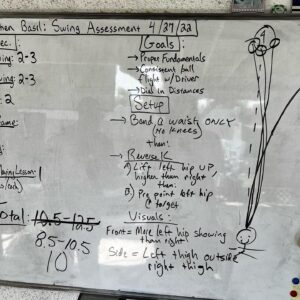 Basil: Swing Assessment 4/27/22
Goals:
→ Proper Fundamentals
→ Consistent ball
flight w/ Driver
→ Dial in Distances
Setup
→ Bend @ waist ONLY
(No Knees)
then:
→ Reverse K
Lift left hip UP,
higher than right
then:
Pre point left hip
@ target
Visuals:
Front = More left hip showing
than right
Side = Left thigh outside
right thigh
ec.
ing: 2-3
wing: 2-3
: 2
ame:
Lesson:
otal: 10.5-12.5
8.5-10.5
10